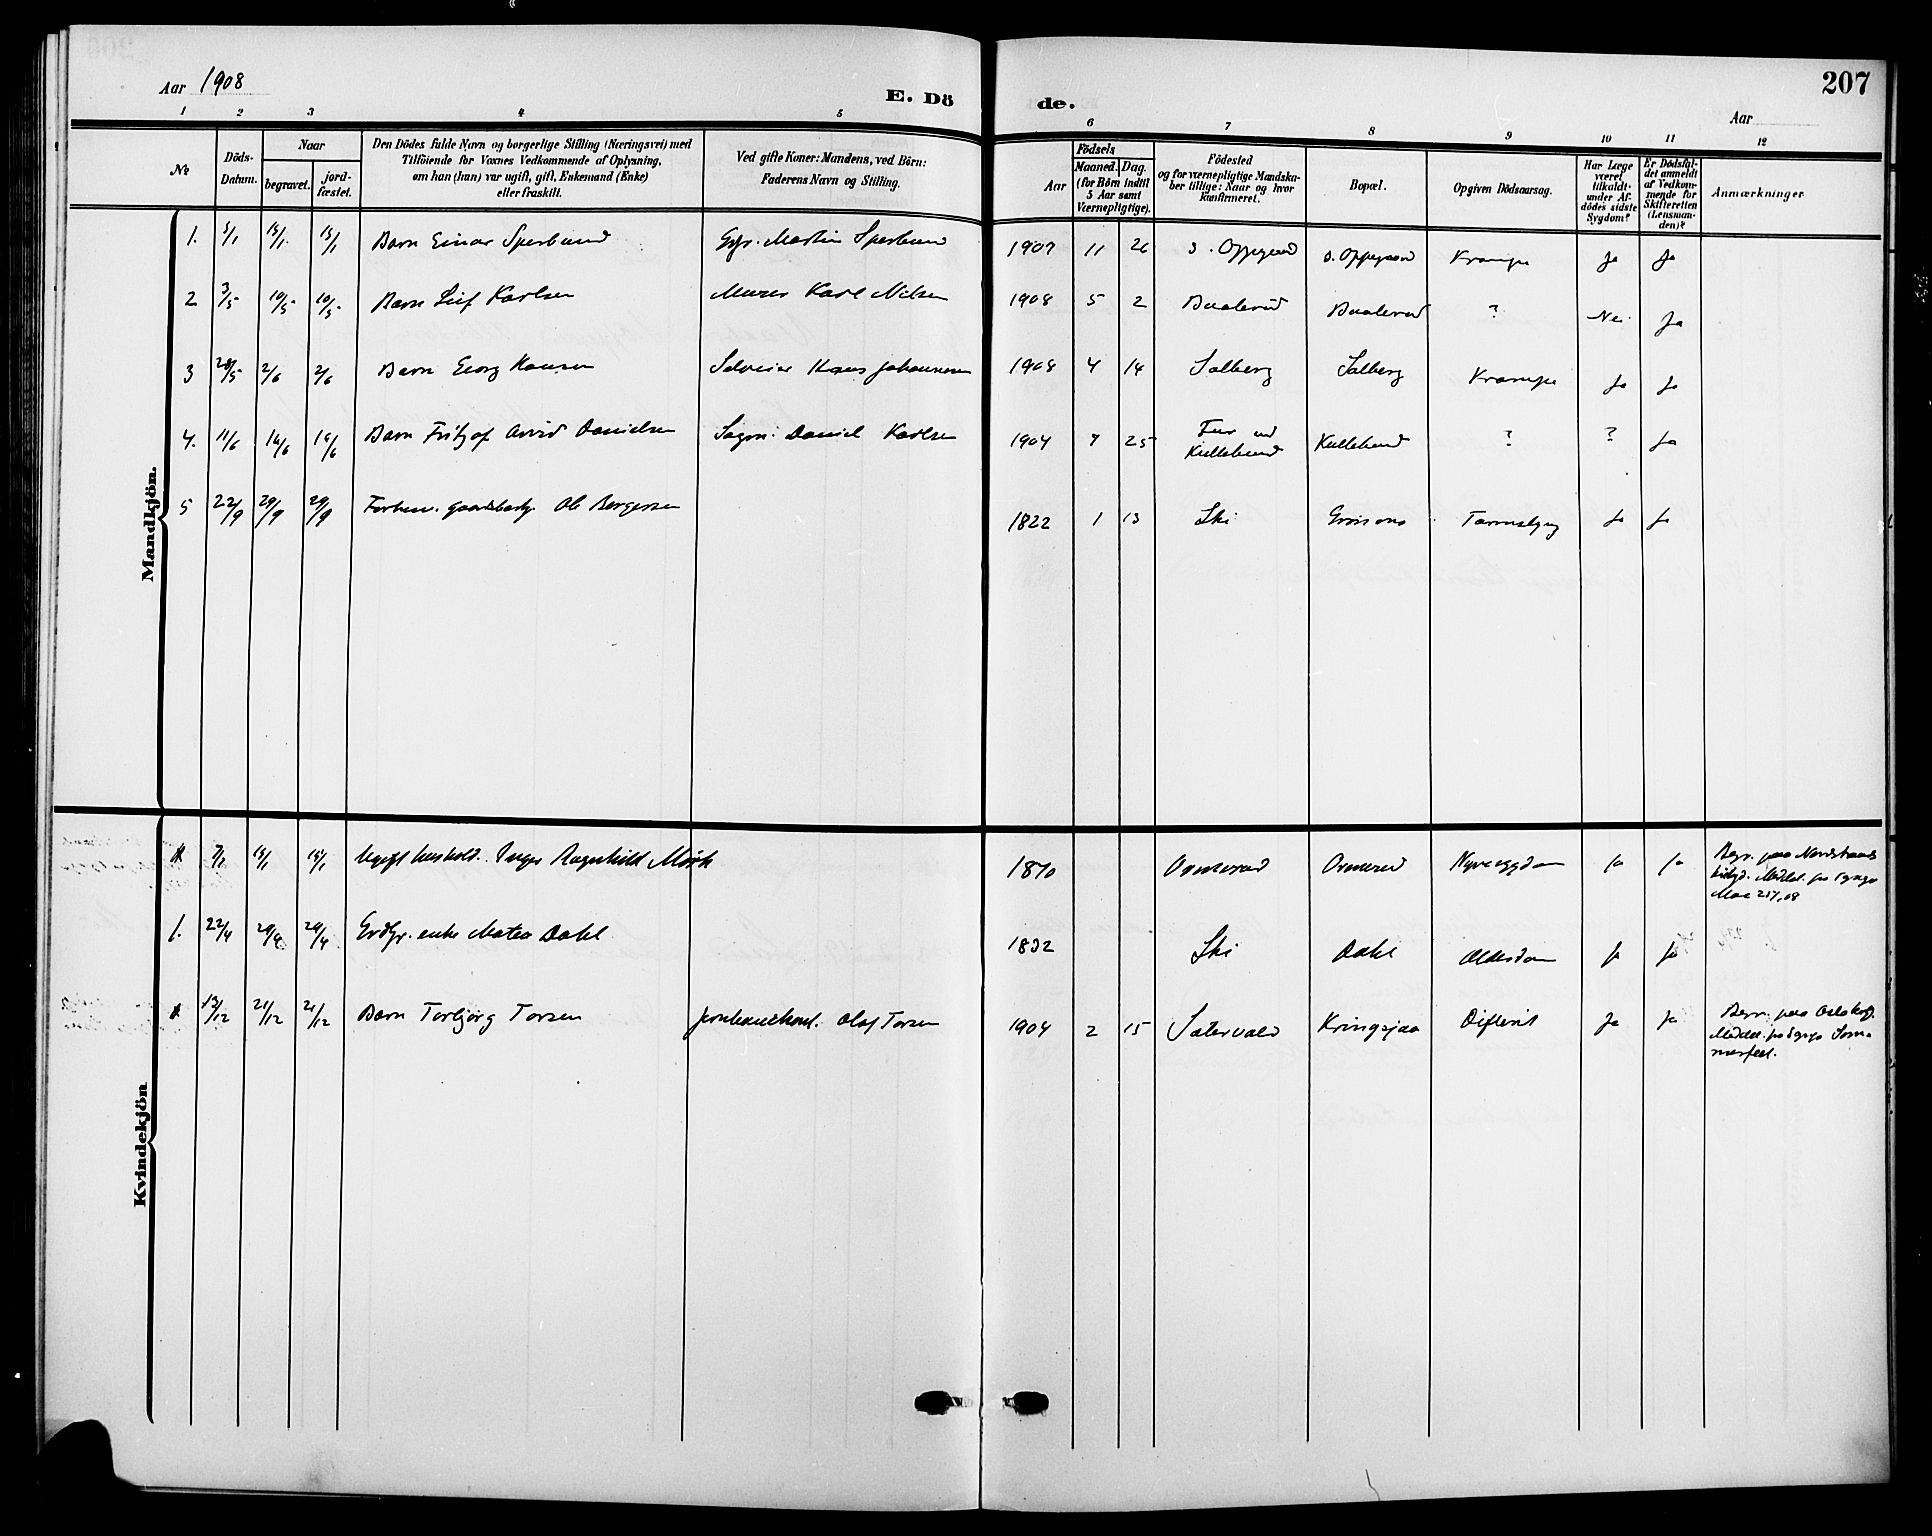 Aar 1908
E. Dö
de.
207
Aar
1 2 3 4 5 6 7 8 9 10 11 12
No
Döds-
Datum.
Naar
begravet.
jord-
fæstet.
Den Dödes fulde Navn og borgerlige Stilling (Næringsvei) med
Tilföiende for Voxnes Vedkommende af Oplysning,
om han (hun) var ugift, gift, Enkemand (Enke)
eller fraskilt.
Ved gifte Koner: Mandens, ved Börn:
Faderens Navn og Stilling.
Födsels
Aar
Maaned. Dag.
(for Börn indtil
5 Aar samt
Værnepligtige).
Födested
og for værnepligtige Mandska-
ber tillige: Naar og hvor
konfirmeret.
Bopæl.
Opgiven Dödsaarsag.
Har Læge
været
tilkaldt
under Af-
dödes sidste
Sygdom?
Er Dödsfal-
det anmeldt
af Vedkom-
mende for
Skifteretten
(Lensman-
den)?
Anmærkninger
Mandkjön.
1. 5/1 15/1 15/1 Barn Einar Sperbund Martin Sperbund 1907 11 26 S. Oppegaard S. Oppegaard Krampe Ja Ja
2 3/5 10/5 10/5 Barn Leif Karlsen Murer Karl Nilsen 1908 5 2 Baalerud Baalerud ? Nei Ja
3 28/5 2/6 2/6 Barn Georg Hansen Selveier Hans Johannesen 1908 4 14 Solberg Solberg Krampe Ja Ja
4. 11/6 16/6 16/6 Barn Fritjof Arvid Danielsen Sagm. Daniel Karlsen 1904 7 25 ved
Kullebund Kullebund ? ? Ja
5 22/9 29/9 29/9 Forhen. gaardbrk. Ole Bergersen 1822 1 13 Ski Ja Ja
Kvindekjön
7/1 15/1 15/1 Ugift hushold. Inger Ragnhild Mörk 1870 Ormerud Ormerud Nyresygdom Ja Ja Begr. paa Nordstrand
Meddel. fra Sygepl.
1. 22/4 29/4 29/4 Grdbr. enke Mathea Dahl 1832 Ski Dahl Alderdom Ja Ja
13/12 21/12 21/12 Barn Torbjörg Torsen Jernbanekont. Olaf Torsen 1904 2 15 Sætervald Kringsjaa Difterit Ja Ja Begr. paa Oslo kg.
Meddel. fra Sgpr. Som-
merfeldt.